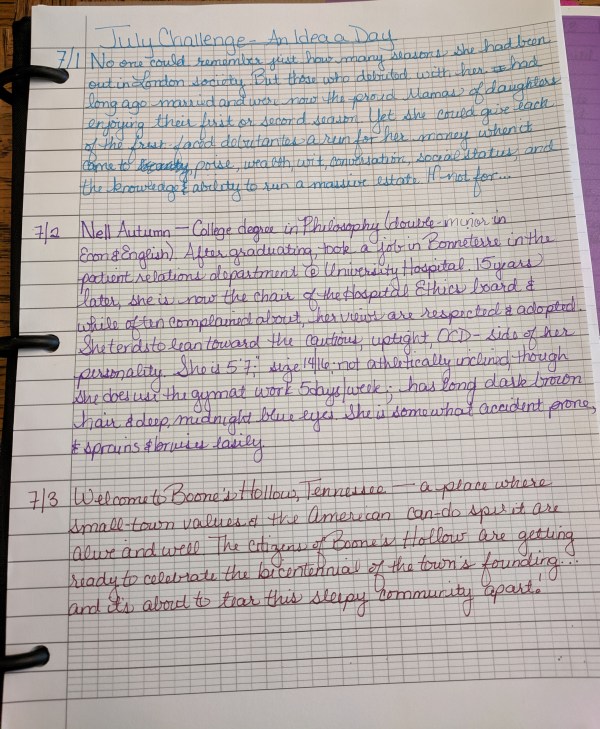 July Challenge - An Idea a Day
7/1 No one could remember just how many seasons she had been
out in London society. But those who debuted with her had
long ago married and were now the proud Mamas of daughters
enjoying their first or second season. Yet she could give each
of the fresh-faced debutantes a run for her money when it
came to beauty, poise, wealth, wit, conversation, social status, and
the knowledge & ability to run a massive estate. If not for...
7/2 Nell Autumn — College degree in Philosophy (double-minor in
Econ & English). After graduating, took a job in Bonneterre in the
patient relations department @ University Hospital. 15 years
later, she is now the chair of the Hospital Ethics board &
while often complained about, her views are respected & adopted.
She tends to lean toward the cautious, uptight, OCD-side of her
personality. She is 5'7", size 14/16; not athletically inclined, though
she does use the gym at work 5 days/week; has long dark brown
hair & deep, midnight blue eyes. She is somewhat accident prone,
& sprains & bruises easily.
7/3 Welcome to Boone's Hollow, Tennessee — a place where
small-town values & the American can-do spirit are
alive and well. The citizens of Boone's Hollow are getting
ready to celebrate the bicentennial of the town's founding...
and it's about to tear this sleepy community apart!